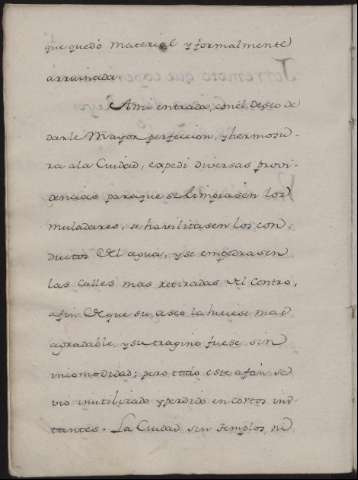 que quedó material y formalmente
arruinada.
A mi entrada, con el deseo de
darle Mayor perfeccion, y hermosu-
ra ala Ciudad, expedi diversas provi-
dencias paraque se limpiasen los
muladares, se havilitasen los con-
ductos del agua, y se empedrasen
las calles mas retiradas del Centro,
afin de que su aseo la huciese mas
agradable, y su tragino fuese sin
incomodidad; pero todo este afan se
vio inutilizado y perdido en cortos ins-
tantes. La Ciudad sin templos, ni